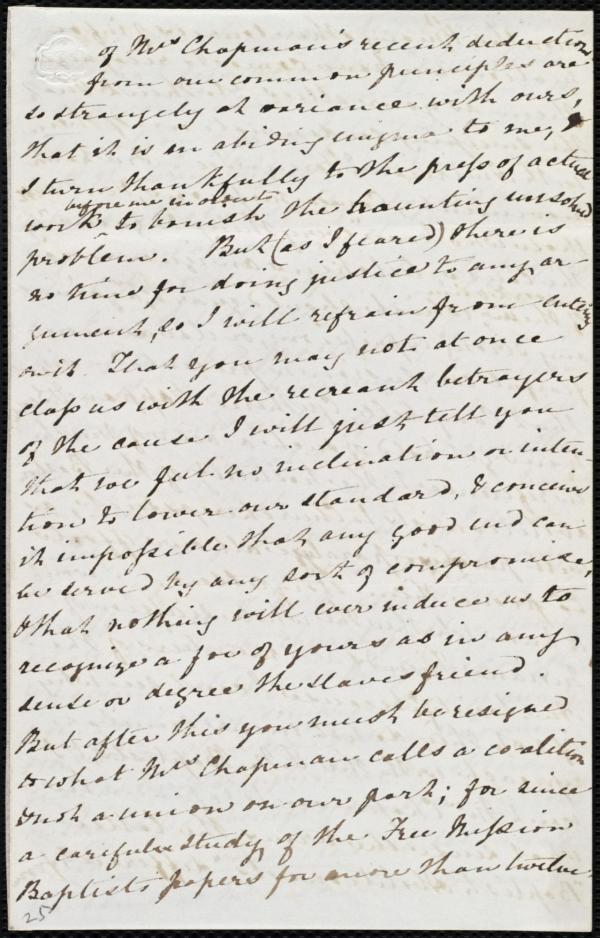 of Mrs Chapman's recent deductions
from our common principles are
so strangely at variance with ours,
that it is an abiding enigma to me, &
I turn thankfully to the press of actual
before me in doubt
work to banish the haunting unsolved
problem. But (as I feared) there is
no time for doing justice to any ar
gument, so I will refrain from entering
on it. That you may not at once
class us with the recreant betrayers
of the cause I will just tell you
that we feel no inclination or inten-
tion to lower our standard, & conceive
it impossible that any good end can
be served by any sort of compromise,
& that nothing will ever induce us to
recognize a foe of yours as in any
sense or degree the slaves friend.
But after this you must be resigned
to what Mrs Chapman calls a coalition
& not a union on our part; for since
a careful study of the Free Mission
Baptists papers for more than twelve
25